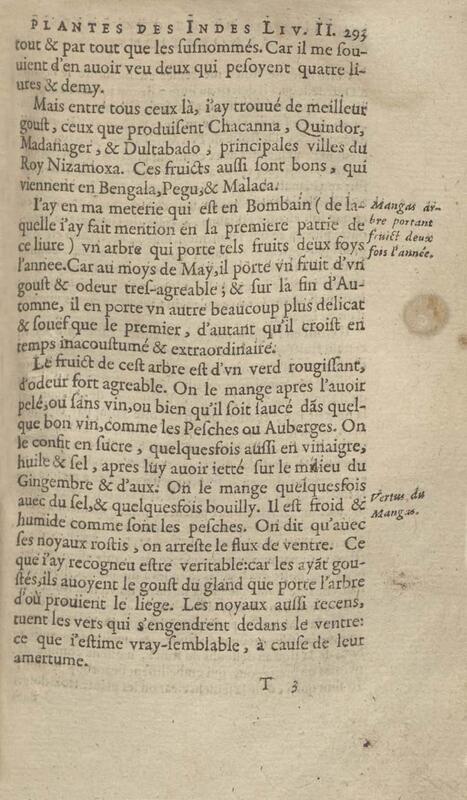 PLANTES DES INDES LIV. II. 293
tout & par tout que les ſuſnommés. Car il me ſou-
uient d'en auoir veu deux qui peſoyent quatre li-
ures & demy.
Mais entre tous ceux là, i'ay trouué de meilleur
gouſt, ceux que produiſent Chacanna, Quindor,
Madanager, & Dultabado, principales villes du
Roy Nizamoxa. Ces fruicts auſſi ſont bons, qui
viennent en Bengala, Pegu, & Malaca.
I'ay en ma meterie qui eſt en Bombain (de la-
quelle i'ay fait mention en la premiere patrie de
ce liure) vn arbre qui porte tels fruits deux foys
l'annee. Car au moys de May, il porte vn fruit d'vn
gouſt & odeur treſ-agreable; & ſur la fin d'Au-
tomne, il en porte vn autre beaucoup plus delicat
& ſouëf que le premier, d'autant qu'il croiſt en
temps inacouſtumé & extraordinaire.
Mangas ar-
bre portant
fruict deux
fois l'année.
Le fruict de ceſt arbre eſt d'vn verd rougiſſant,
d'odeur fort agreable. On le mange apres l'auoir
pelé, ou ſans vin, ou bien qu'il ſoit ſaucé dãs quel-
que bon vin, comme les Peſches ou Auberges. On
le confit en ſucre, quelquesfois auſſi en vinaigre,
huile & ſel, apres luy auoir ietté ſur le milieu du
Gingembre & d'aux. On le mange quelquesfois
auec du ſel, & quelquesfois bouilly. Il eſt froid &
humide comme ſont les peſches. On dit qu'auec
ſes noyaux roſtis, on arreſte le flux de ventre. Ce
que i'ay recogneu eſtre veritable: car les ayãt gou-
ſtés, ils auoyent le gouſt du gland que porte l'arbre
d'où prouient le liege. Les noyaux auſſi recens,
tuent les vers qui s'engendrent dedans le ventre:
ce que i'eſtime vray-ſemblable, à cauſe de leur
amertume.
Vertus du
Mangas.
T 3